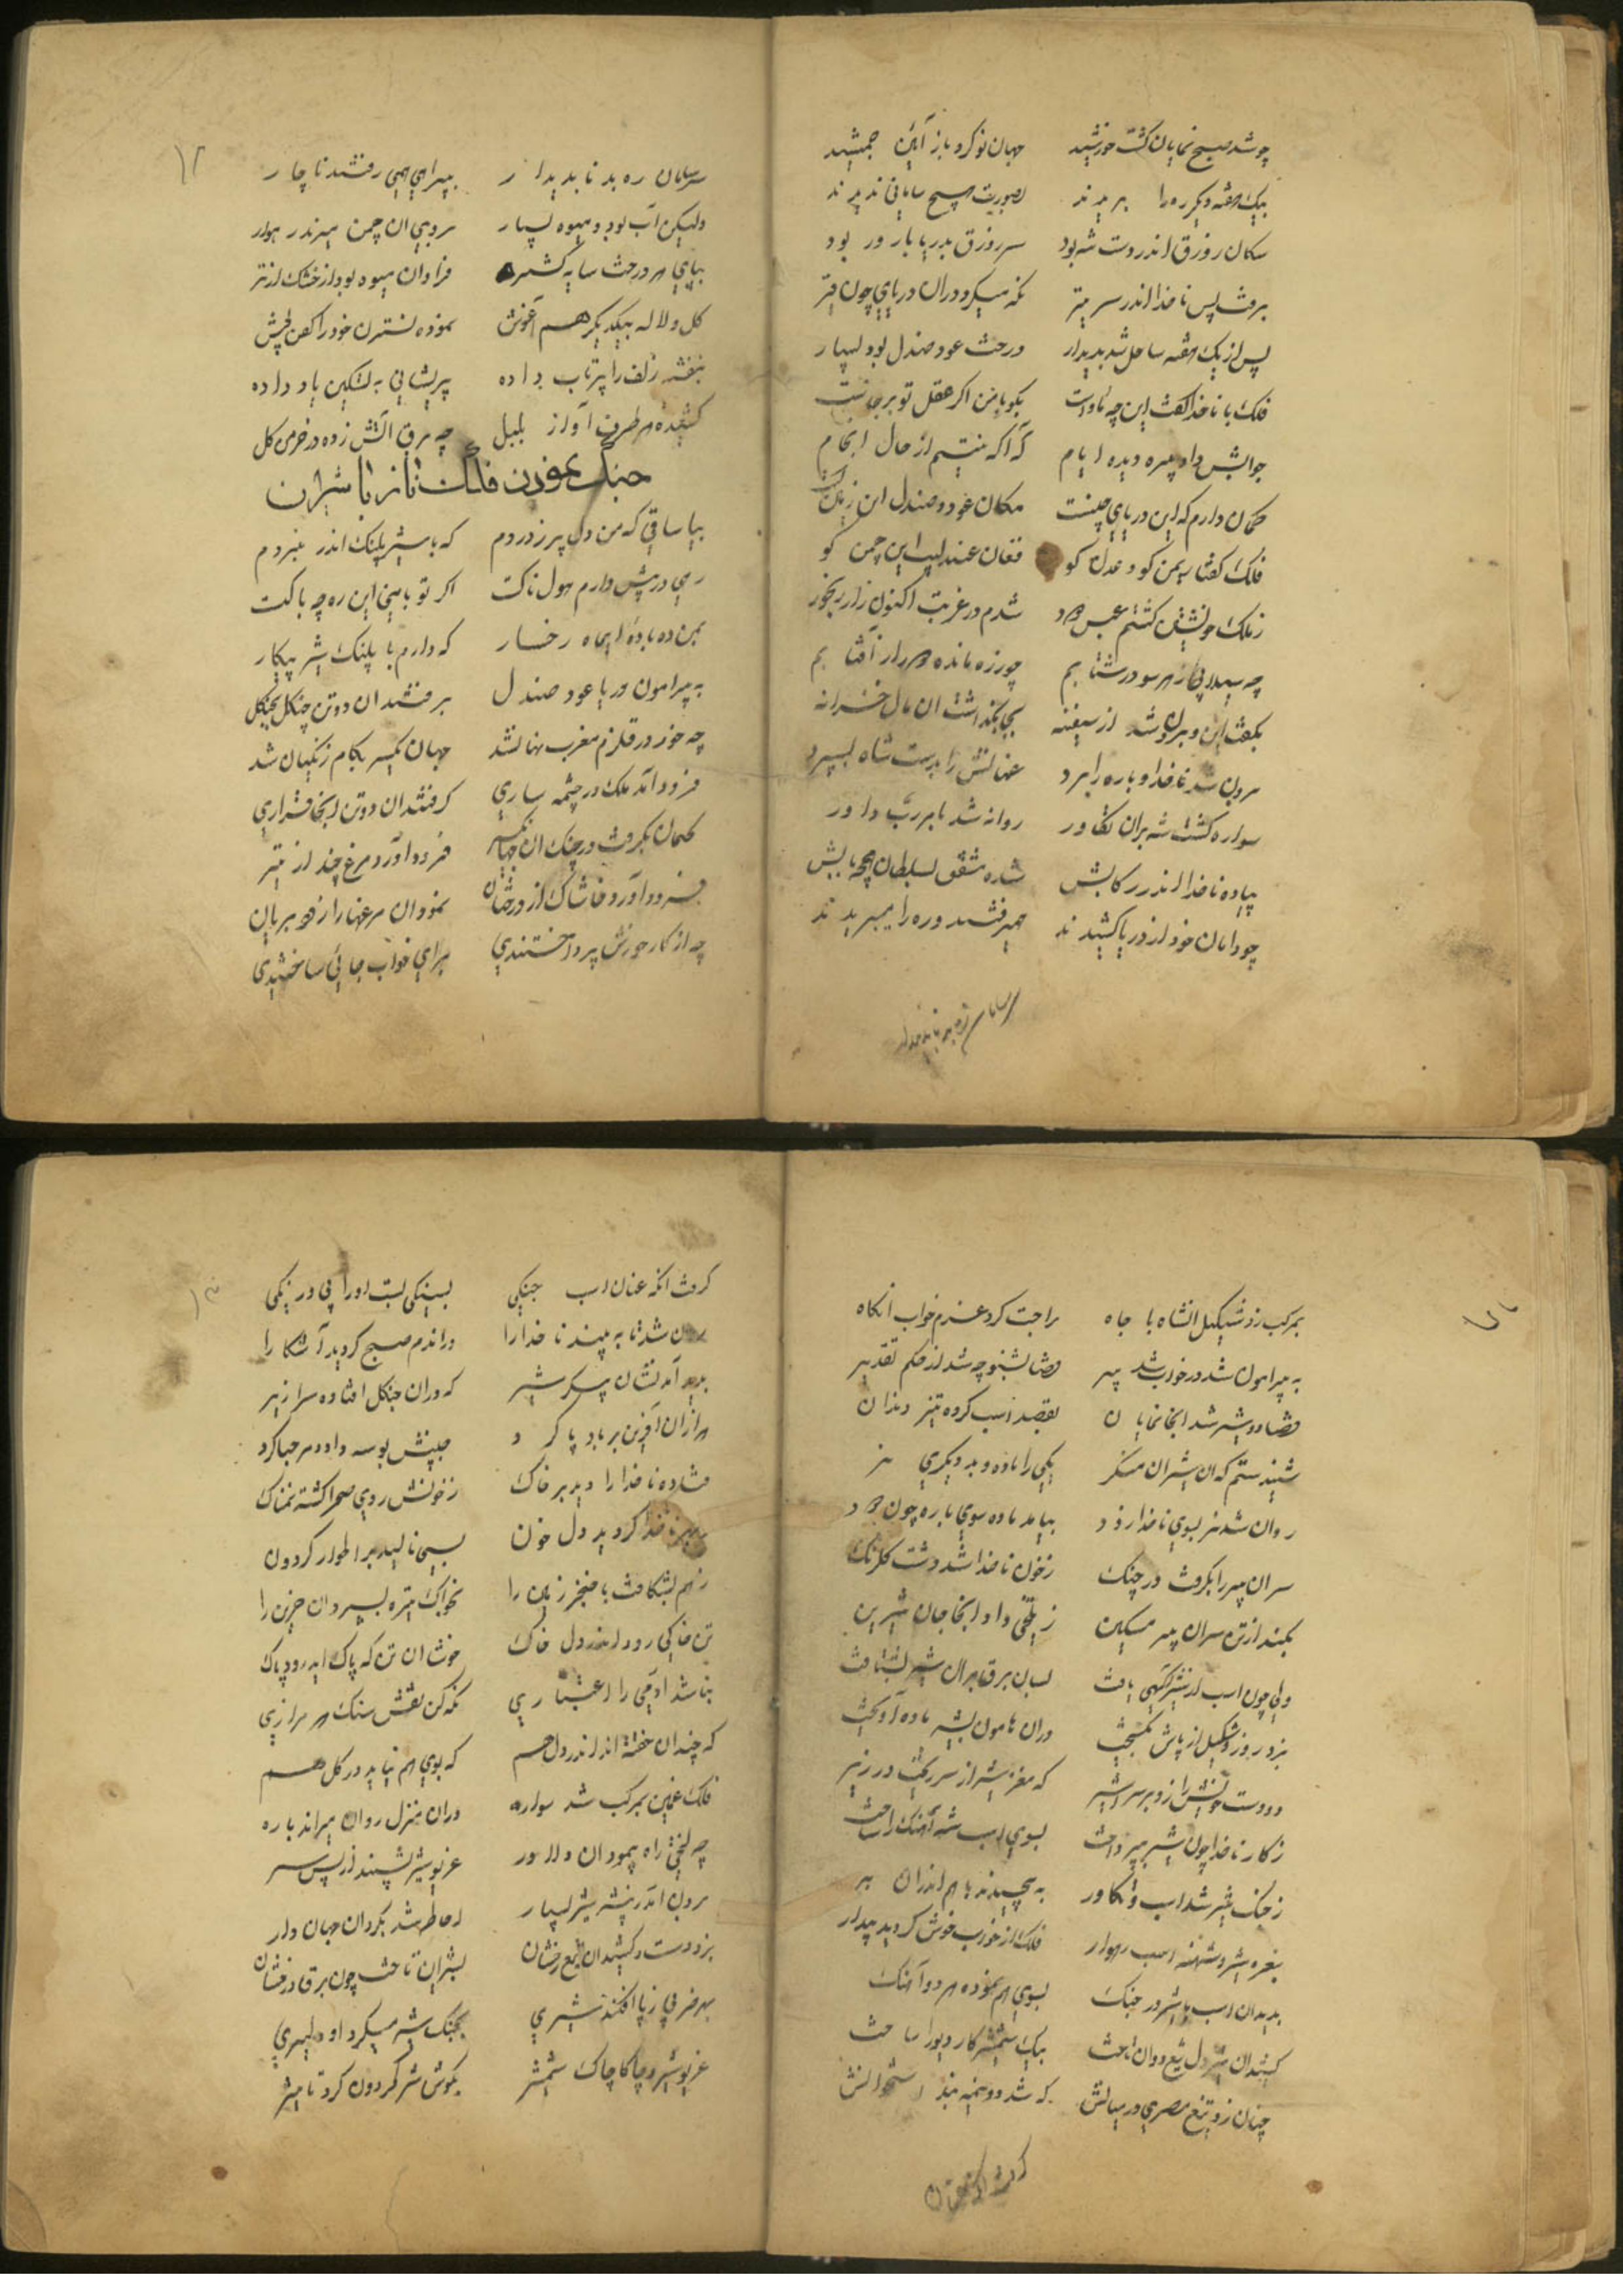 چو شد صبح نمایان گشت خورشید جهان نو کرد باز آئین جمشید
بیک هفته دیگر ره را بریدند بصورت هیچ سامانی ندیدند
سکان روزق اندر دست شه بود سر روزق بدریا بار ور بود
برفت پس ناخدا اندر سر تیر نکه میکرد دران دریای چون قیر
پس از یک هفته ساحل شد پدیدار درخت عود صندل بود بسیار
فلک با ناخدا گفت این چه ماواست بکو بامن اگر عقل تو برجاست
جوابش داد پیره دیده ایام که آگه نیستم از حال انجام
گمان دارم که این دریای چینست مکان عود و صندل این زمین است
فلک گفتا یمن کو و عدن کو فغان عندلیب این چمن کو
ز ملک خویشتن گشتم عجب دور شدم در غربت اکنون زار رنجور
چه سیلابی از هر سو در شتابم چو رزه مانده دور از آفتابم
بگفت این و برون شد از سفینه بجا بگذاشت آن مال خزانه
برون شد ناخدا و باره را برد عنانش را بدست شاه بسپرد
سواره گشت شه بران تکاور روانه شد بامر رب داور
پیاده ناخدا اندر رکابش شده مشفق بسلطان همچو بابش
چو دامان خود از دریا کشیدند همیرفتند و ره را میبریدند
سر سامان ره بد ناپدیدار
۱۲
سر سامان ره بد ناپدیدار بپیراهی همی رفتند ناچار
ولیکن آب بود و میوه بسیار بروی آن چمن میرفتند هموار
بپای هر درخت سایه گستر فراوان میوه بود از خشک از تر
گل و لاله بیکدیگر هم آغوش نموده نسترن خود را کفن پوش
بنفشه زلف را پرتاب داده پریشانی به لشکین باد داده
کشیده هر طرف آواز بلبل چه برق آتش زده در خرمن گل
جنگ نمودن فلک ناز با شیران
بیا ساقی که من دل پر ز دردم که با شیر پلنگ اندر نبردم
رهی در پیش دارم هولناکست اگر تو با منی این ره چه باکست
بمن ده باده ای ماه رخسار که دارم با پلنگ شیر پیکار
به پیرامون دریا عود صندل برفتند آن دوتن جنگل بجنگل
چه خور در قلزم مغرب نهان شد جهان یکسر بکام زنگیان شد
فرود آمد ملک در چشمه ساری گرفتند آن دوتن اینجا قراری
کمان بگرفت در چنگ آن جهانگیر فرود آورد مرغ چند از تیر
فرود آورد خاشاک از درختان نمود آن مرغها را زود بریان
چه از کار خورش پرداختندی برای خواب جائی ساختندی
بمرکب زد شکیل آنشاه با جاه مراجعت کرد عزم خواب آنگاه
به پیرامون شد در خواب شد پیر قضا بشنو چه شد از حکم تقدیر
قضا دو شیر شد اینجا نمایان بقصد اسب کرده تیز دندان
شنیدستم که آن شیران منکر یکی را ماده و بد دیگری نر
روان شد نر بسوی ناخدا زود بیامد ماده سوی باره چون دود
سر آن پیر را بگرفت در چنگ ز خون ناخدا شد دشت گلرنگ
بکند از تن سر آن پیر مسکین ز تلخی داد اینجا جان شیرین
ولی چون اسب از شیر آگهی یافت بسان برق بران شیر بشتافت
بزد زور و شکیل از پاش بگسیخت دران هامون بشیر ماده آویخت
دو دست خویش را زد بر سر شیر که مغز شیر از سر ریخت در زیر
ز کار ناخدا چون شیر پرداخت بسوی اسب شه آهنگ انداخت
ز جنگ شیر شد اسب تکاور به پیچیدند باهم اندران بر
بغره شیر و شیهه اسب رهوار فلک از خواب خوش گردید بیدار
بدید آن اسب با شیر در جنگ بسوی هم نموده هر دو آهنگ
کشید آن شیر دل تیغ و دوان تاخت بیک شمشیر کار دیو را ساخت
چنان زد تیغ مصری در میانش که شد دو نیمه بند استخوانش
گرفت آنگه عنان
۱۳
گرفت آنگه عنان اسب جنگی بسنگی بست او را بی درنگی
روان شد تا به بیند ناخدا را در آندم صبح گردید آشکارا
بدید آمد نشان پیکر شیر که دران جنگل افتاده سرازیر
هزاران آفرین بر باد پا کرد جبینش بوسه داد و مرحبا کرد
فتاده ناخدا را دید بر خاک ز خونش روی صحرا گشته نمناک
ز بهر ناخدا گردید دل خون بسی نالید بر اطوار گردون
ز هم بشکافت با خنجر زمین را بخاک تیره بسپرد آن حزین را
تن خاکی رود اندر دل خاک خوشا آن تن که پاک آید رود پاک
نباشد آدمی را اعتباری نگه کن نقش سنگ هر مزاری
که چندان خفته اند اندر دل هم که بوی هم نیاید در گل هم
فلک غمگین بمرکب شد سواره دران منزل روان میراند باره
چه لختی راه پیمود آن دلاور غریو شیر بشنید از پس سر
برون آمد ز بیشه شیر بسیار احاطه شد بگرد آن جهان دار
بزد دست و کشید آن تیغ رخشان بشیران تاخت چون برق درخشان
بهر ضربی ز پا افکند شیری بجنگ شیر میکرد او دلیری
غریو شیر و چاکاچاک شمشیر بگوش شیر گردون کرد تاثیر